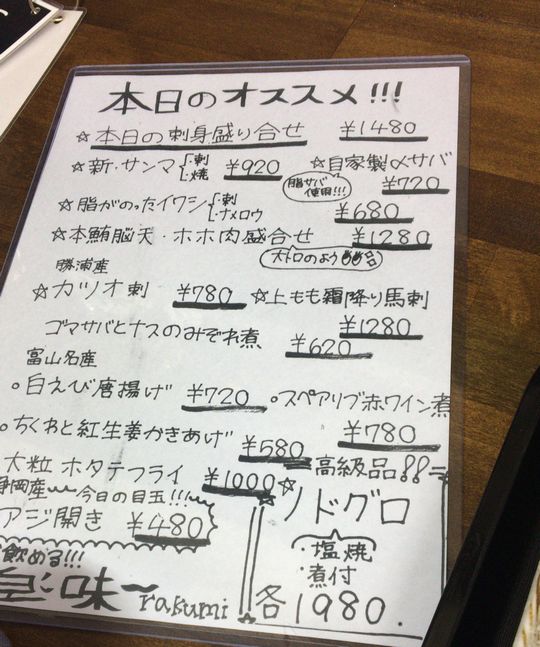 本日のオススメ!!!
☆本日の刺身盛り合せ ¥1480
☆新・サンマ{・刺 ・焼 ¥920
☆自家製〆サバ
脂サバ使用!!! ¥720
☆脂がのったイワシ{・刺 ・ナメロウ ¥680
☆本鮪脳天・ホホ肉盛合せ ¥1280
大トロのよう
勝浦産
☆カツオ刺 ¥780
☆上もも霜降り馬刺 ¥1280
ゴマサバとナスのみぞれ煮 ¥620
富山名産
○白えび唐揚げ ¥720
○スペアリブ赤ワイン煮 ¥780
○ちくわと紅生姜かきあげ ¥580
大粒ホタテフライ ¥1000
静岡産 今日の目玉!!!
アジ開き ¥480
☆高級品!!
ノドグロ
・塩焼
・煮付
各1980.
飲める!!!
味
rakumi